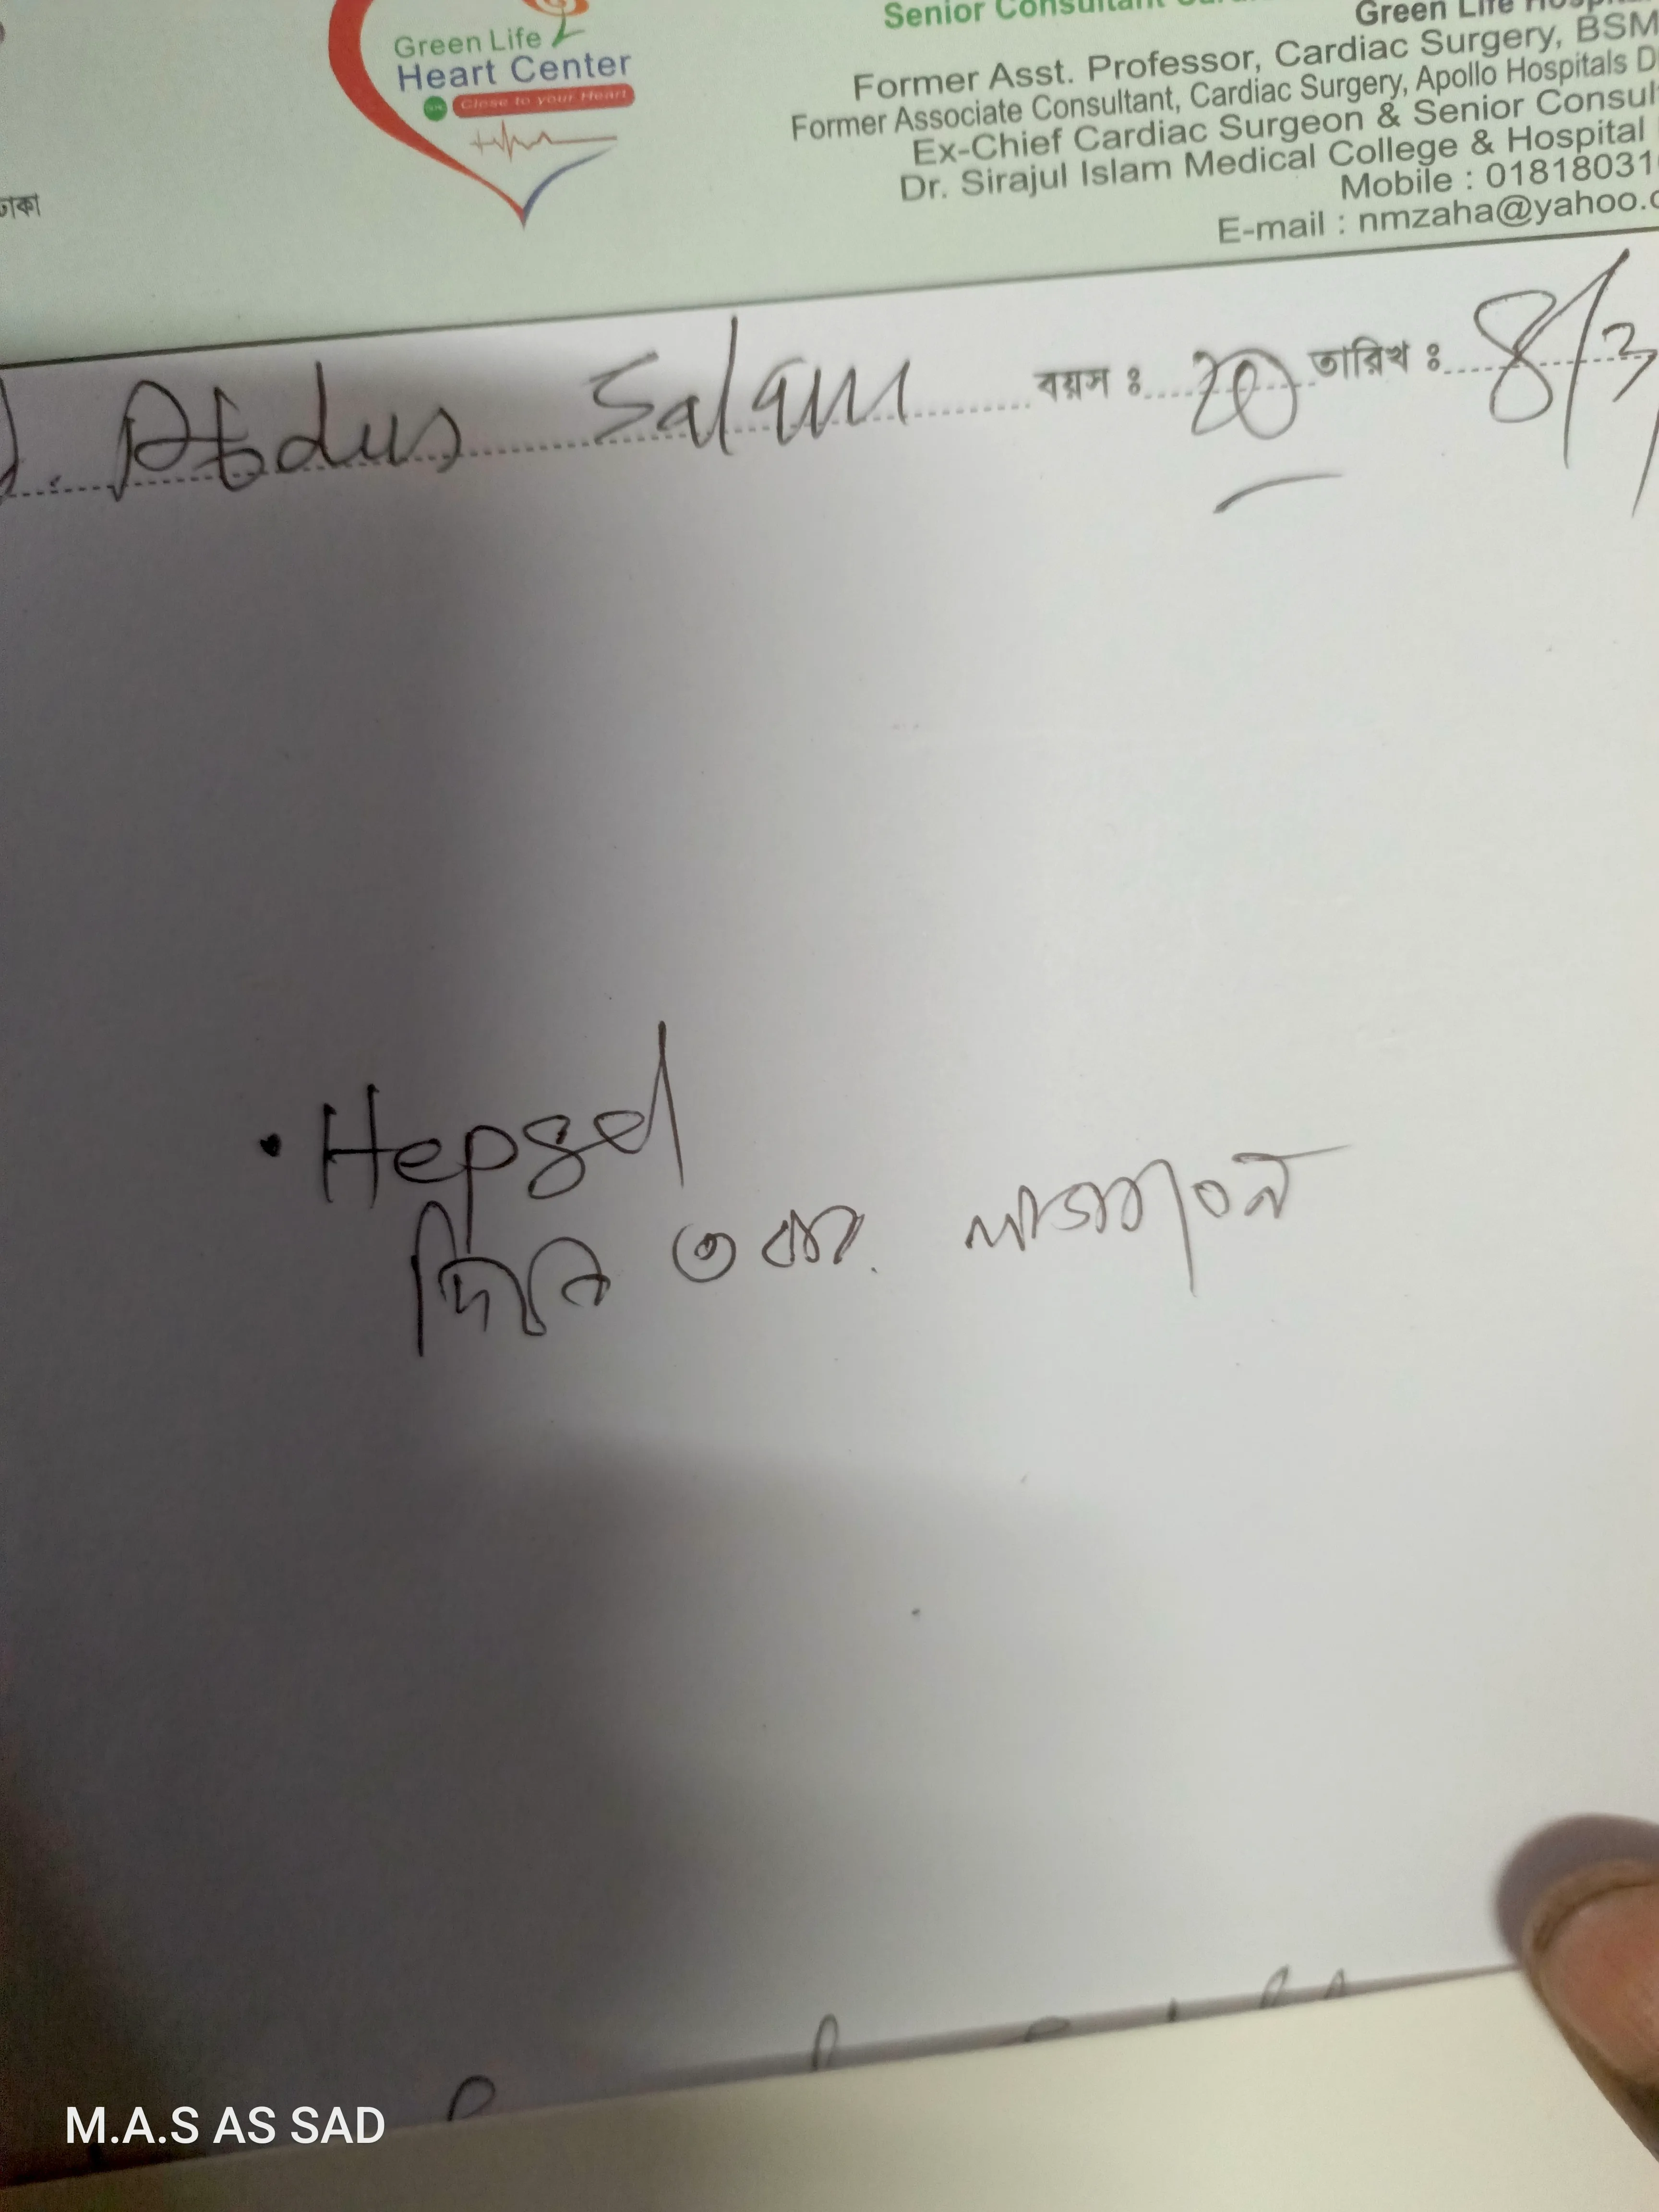 Green Life
Heart Center
Close to your Heart
Senior Consultant
Green Life
Former Asst. Professor, Cardiac Surgery, BSM
Former Associate Consultant, Cardiac Surgery, Apollo Hospitals D
Ex-Chief Cardiac Surgeon & Senior Consul
Dr. Sirajul Islam Medical College & Hospital
Mobile : 01818031
E-mail : nmzaha@yahoo.
ঢাকা
Abdus Salam বয়স ঃ 20 তারিখ ঃ 8/3/
• Hepgel
দিনে ৩ বার. লাগাবেন
M.A.S AS SAD